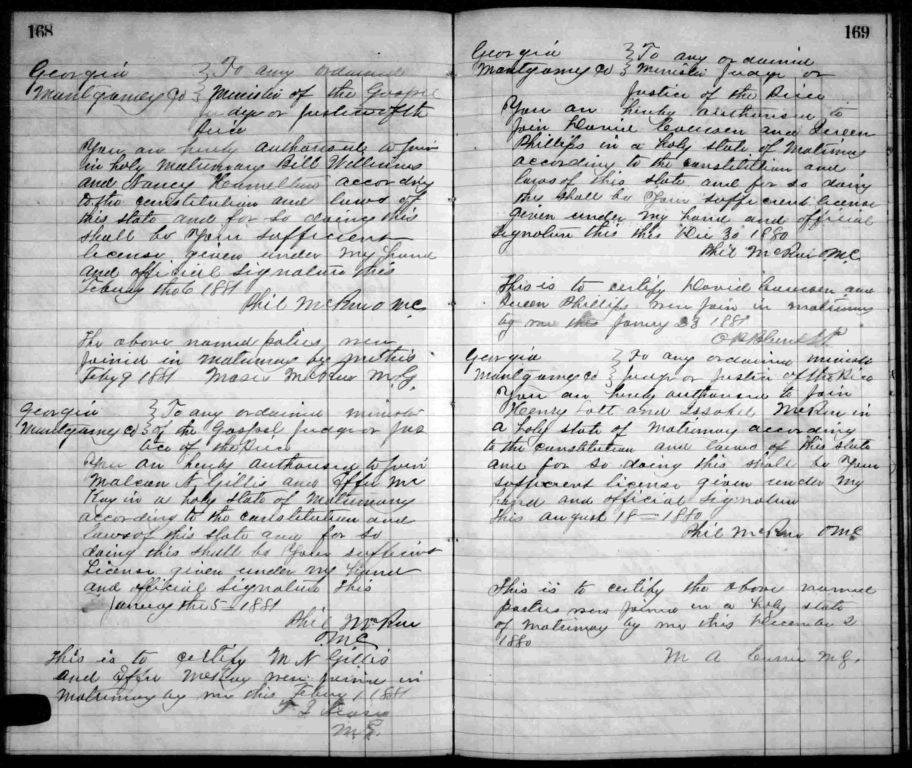 168
Georgia } To any ordained
Montgomery Co } Minister of the Gospel
judge or justice of th
Pice
You an herby authorised to join
in holy Matrimony Bill Williams
and Nancy according
to the constitution and laws of
this state and for so doing this
shall be Your sufficient
license given under my hand
and official Signature this
Febury the 6 1881
Phil McRae O M C
The above named parties wer
joined in matrimony by me this
Feby 9 1881 M.G.
Georgia } To any ordained minister
Montgomery Co } of the Gospel judge or jus
tice of the Pice
You an herby authorised to join
Malcom N. Gillis and Effie Mc
Kay in a holy state of Matrimony
according to the constitution and
laws of this state and for so
doing this shall be Your sufficint
License given under my Hand
and official Signature This
January the 5 1881
Phil McRae
O M C
This is to certify M N Gillis
and Effie McKay were joined in
Matrimony by me this Febuy 1 1881
M.G.
169
Georgia } To any ordained
Montgomery Co } Minister judge or
justice of the Pice
You an herby authorised to
join David and Queen
Phillips in a Holy state of Matrimony
according to the constitution and
laws of this state and for so doing
this shall be Your sufficient license
given under My hand and official
Signature this the Dec 30 1880
Phil McRae O M C
This is to certify David and
Queen Phillips were join in matrimony
by me this January 23 1881
Georgia } To any ordained minister
Montgomery Co } judge or justice of the Pice
You an herby authorised to join
Henry and Issabel McRae in
a holy state of Matrimony according
to the constitution and laws of this state
and for so doing this shall be Your
sufficient license given under My
hand and official signature
This august 18 = 1880
Phil McRae O M C
This is to certify the above named
parties were joined in a holy state
of matrimony by me this December 2
1880
M A Currie M.G.